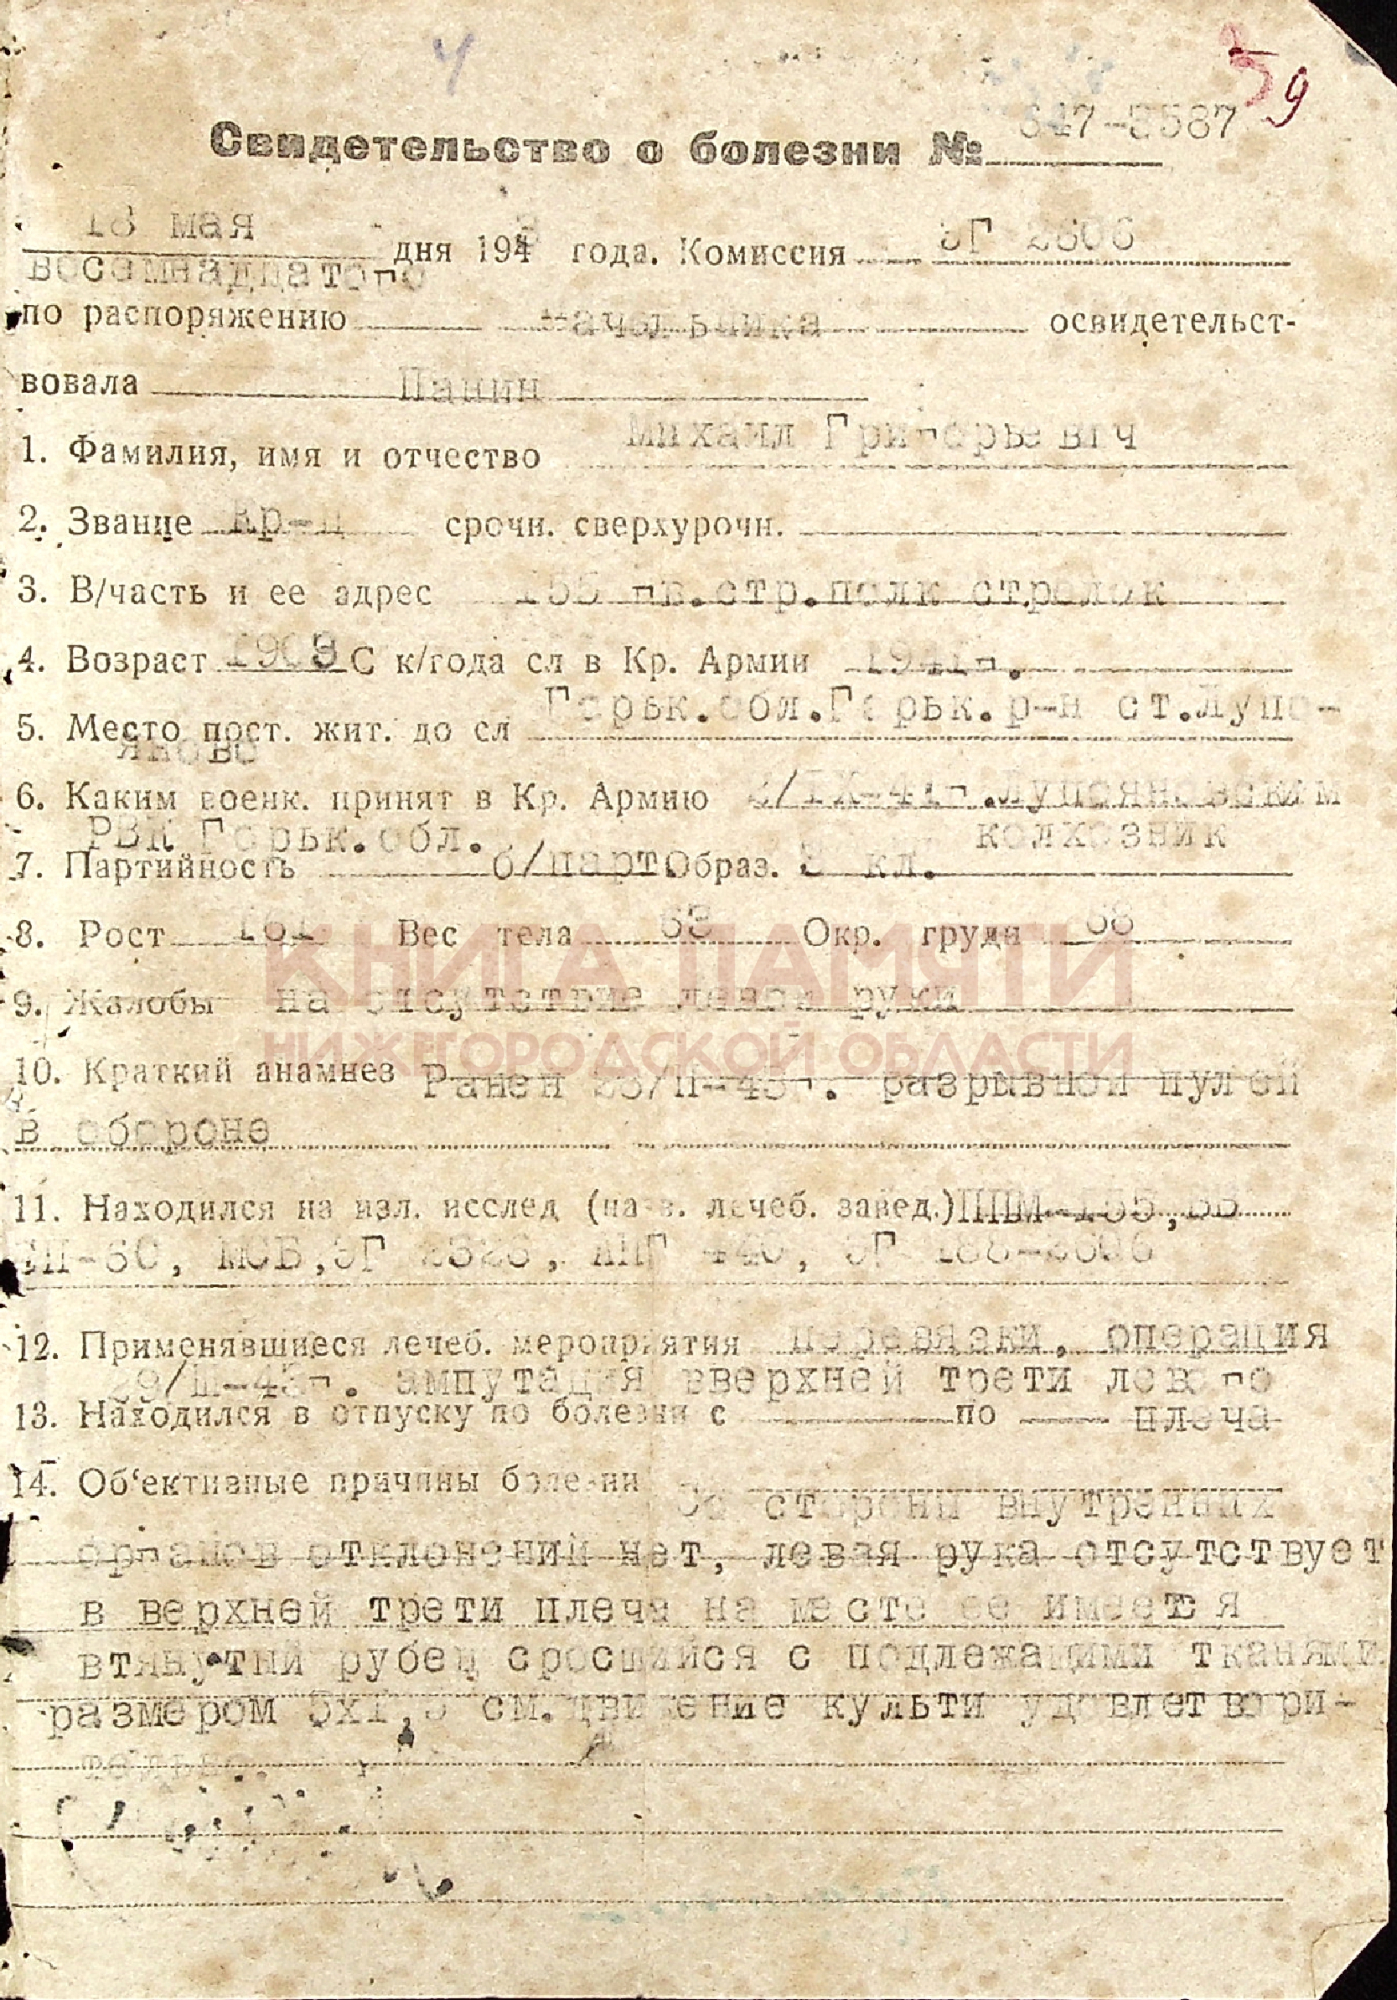 59
Свидетельство о болезни № 647-5587
18 мая
дня 1943 года. Комиссия ЭГ 2606
восемнадцатого
по распоряжению начальника освидетельст-
вовала Панин
Михаил Григорьевич
1. Фамилия, имя и отчество
2. Звание кр-ц срочн. сверхурочн.
3. В/часть и ее адрес 155 гв.стр.полк стрелок
4. Возраст 1903 С к/года сл в Кр. Армии 1941г.
5. Место пост. жит. до сл Горьк.обл.Горьк.р-н ст.Лупо-
яково
6. Каким военк. принят в Кр. Армию /IX-41г.Лупояновским
РВК Горьк.обл. колхозник
7. Партийность б/парт Образ. 3 кл.
8. Рост 161 Вес тела 63 Окр. груди 88
9. Жалобы на отсутствие левой руки
КНИГА ПАМЯТИ
НИЖЕГОРОДСКОЙ ОБЛАСТИ
10. Краткий анамнез Ранен /II-43г. разрывной пулей
в обороне
11. Находился на изл. исслед (назв. лечеб. завед.) ППМ-155,
МСБ, ЭГ ЭГ
12. Применявшиеся лечеб. мероприятия перевязки, операция
29/III-43г. ампутация вверхней трети левого
13. Находился в отпуску по болезни с по плеча
14. Об‘ективные причины болезни Со стороны внутренних
органов отклонений нет, левая рука отсутствует
в верхней трети плеча на месте ее имеется
втянутый рубец сросшийся с подлежащими тканями
размером 5х1,5 см.движение культи удовлетвори-
тельно.